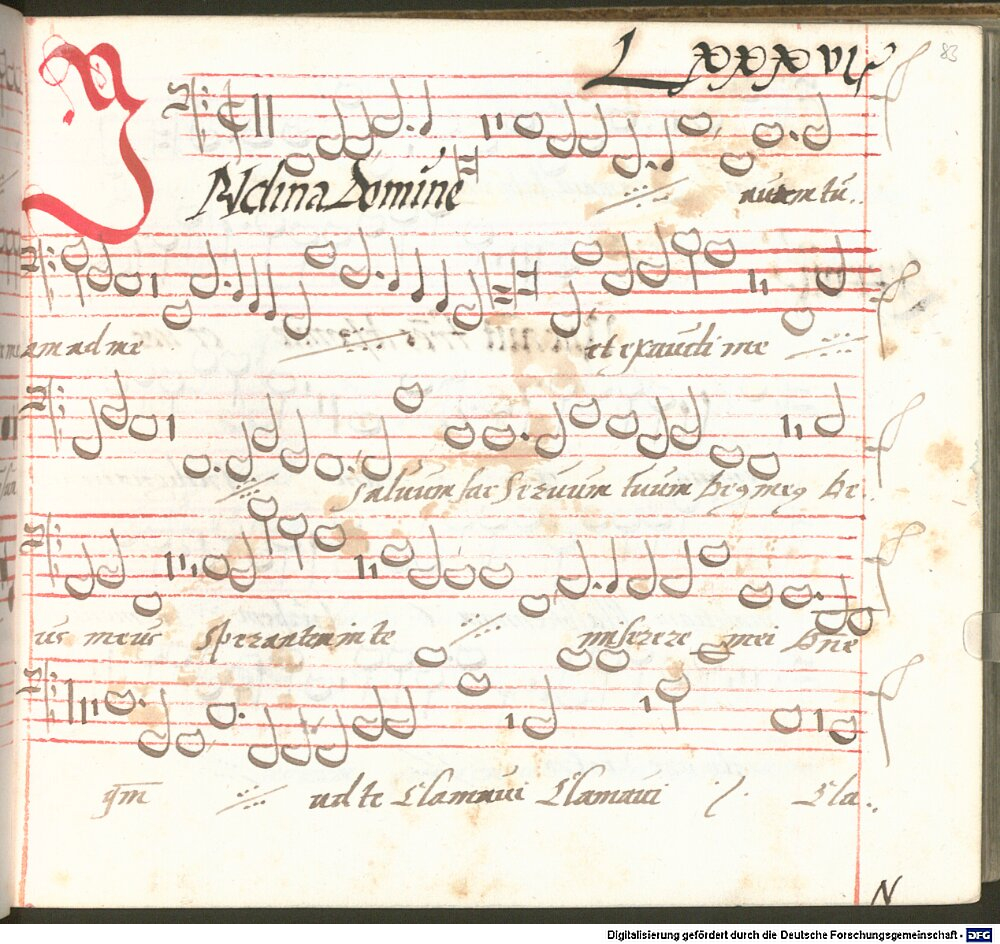 LXXXVI
83
INclina Domine aurem tu..
am ad me et exaudi me
saluum fac seruum tuum de9 me9 de..
us meus sperantem in te miserere mei dñe
qm̄ ad te Clamaui Clamaui Cla..
N
Digitalisierung gefördert durch die Deutsche Forschungsgemeinschaft - DFG